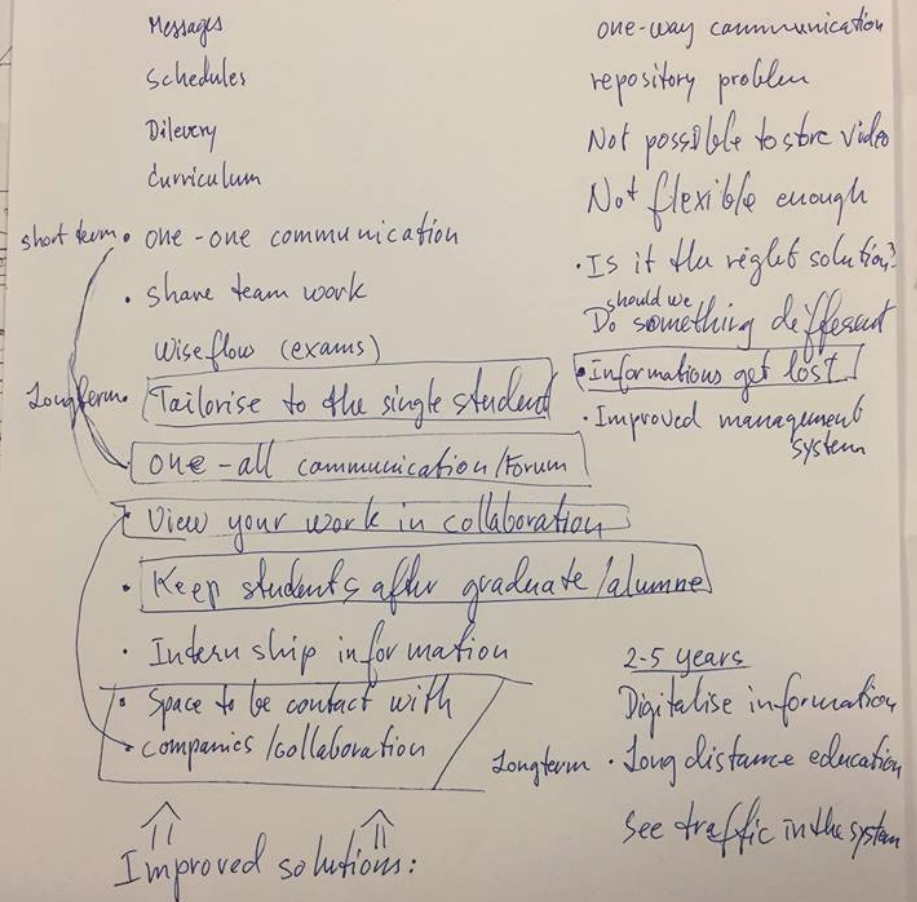 Messages
Schedules
Dilevery
Curriculum
short term • one-one communication
• share team work
Wiseflow (exams)
Longterm • Tailorise to the single student
one-all communication/Forum
View your work in collaboration
• Keep students after graduate/alumne
• Internship information
• Space to be contact with
companies/collaboration
Improved solutions:
one-way communication
repository problem
Not possible to store video
Not flexible enough
• Is it the right solution?
should we
Do something different
• Informations get lost
• Improved management
system
2-5 years
Digitalise information
Longterm • Long distance education
See traffic in the system